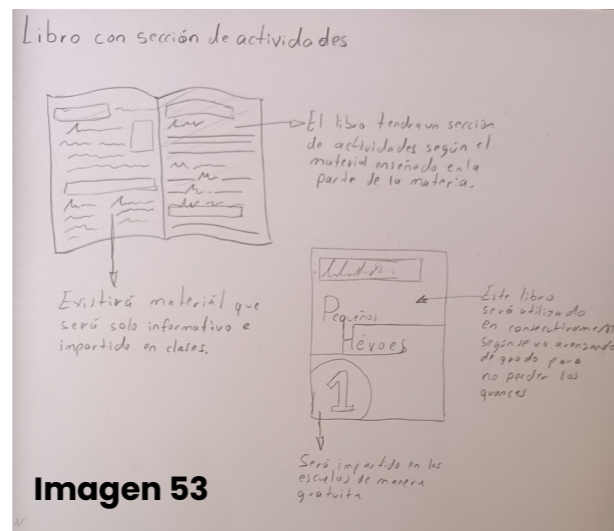 Libro con sección de actividades
El libro tendra un sección
de actividades según el
material enseñado en la
parte de la materia.
Existirá material que
será solo informativo e
impartido en clases.
Pequeños
Héroes
1
Este libro
será utilizado
en consecutivament
según se va avanzando
de grado para
no perder los
avances
Será impartido en las
escuelas de manera
gratuita
Imagen 53